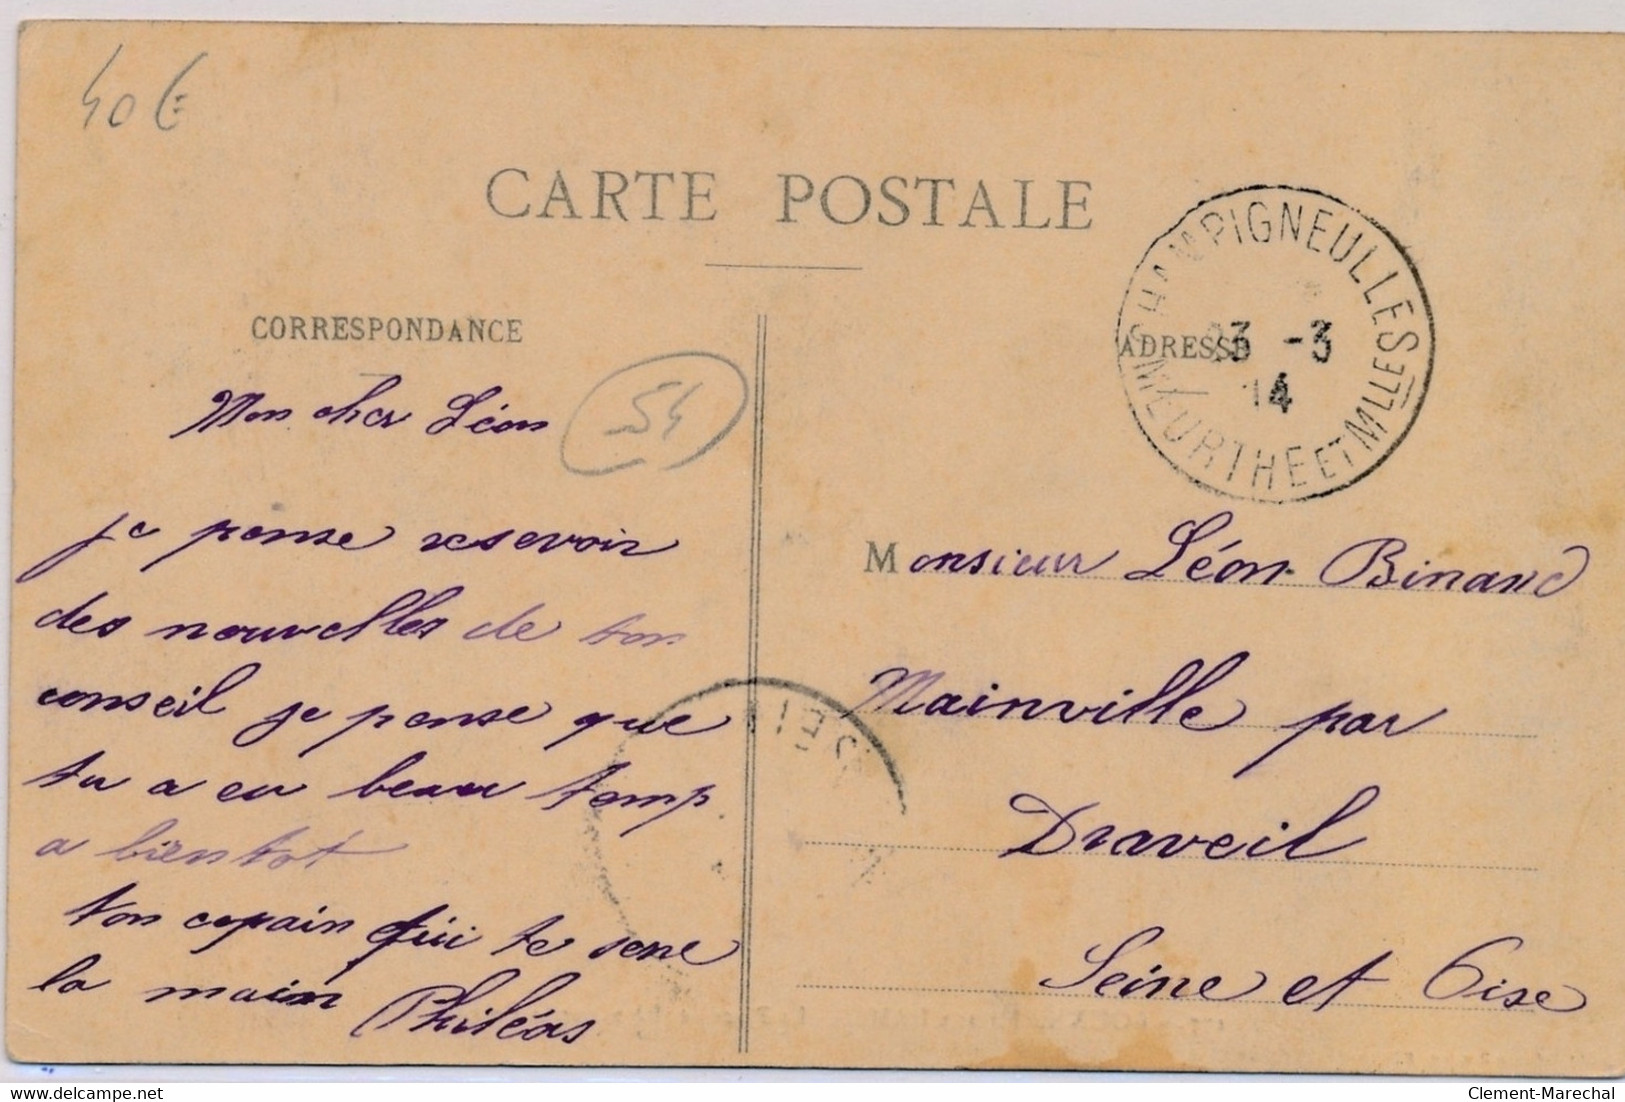 40€
CARTE POSTALE
CORRESPONDANCE
ADRESSE
CHAMPIGNEULLES
23 -3
14
MEURTHE ET MLLE
54
Mon cher Léon
je pense resevoir
des nouvelles de ton
conseil je pense que
tu a eu beau temp
a bientot
ton copain qui te sere
la main Philéas
Monsieur Léon Binand
Mainville par
Draveil
Seine et Oise
www.delcampe.net
Clement-Marechal